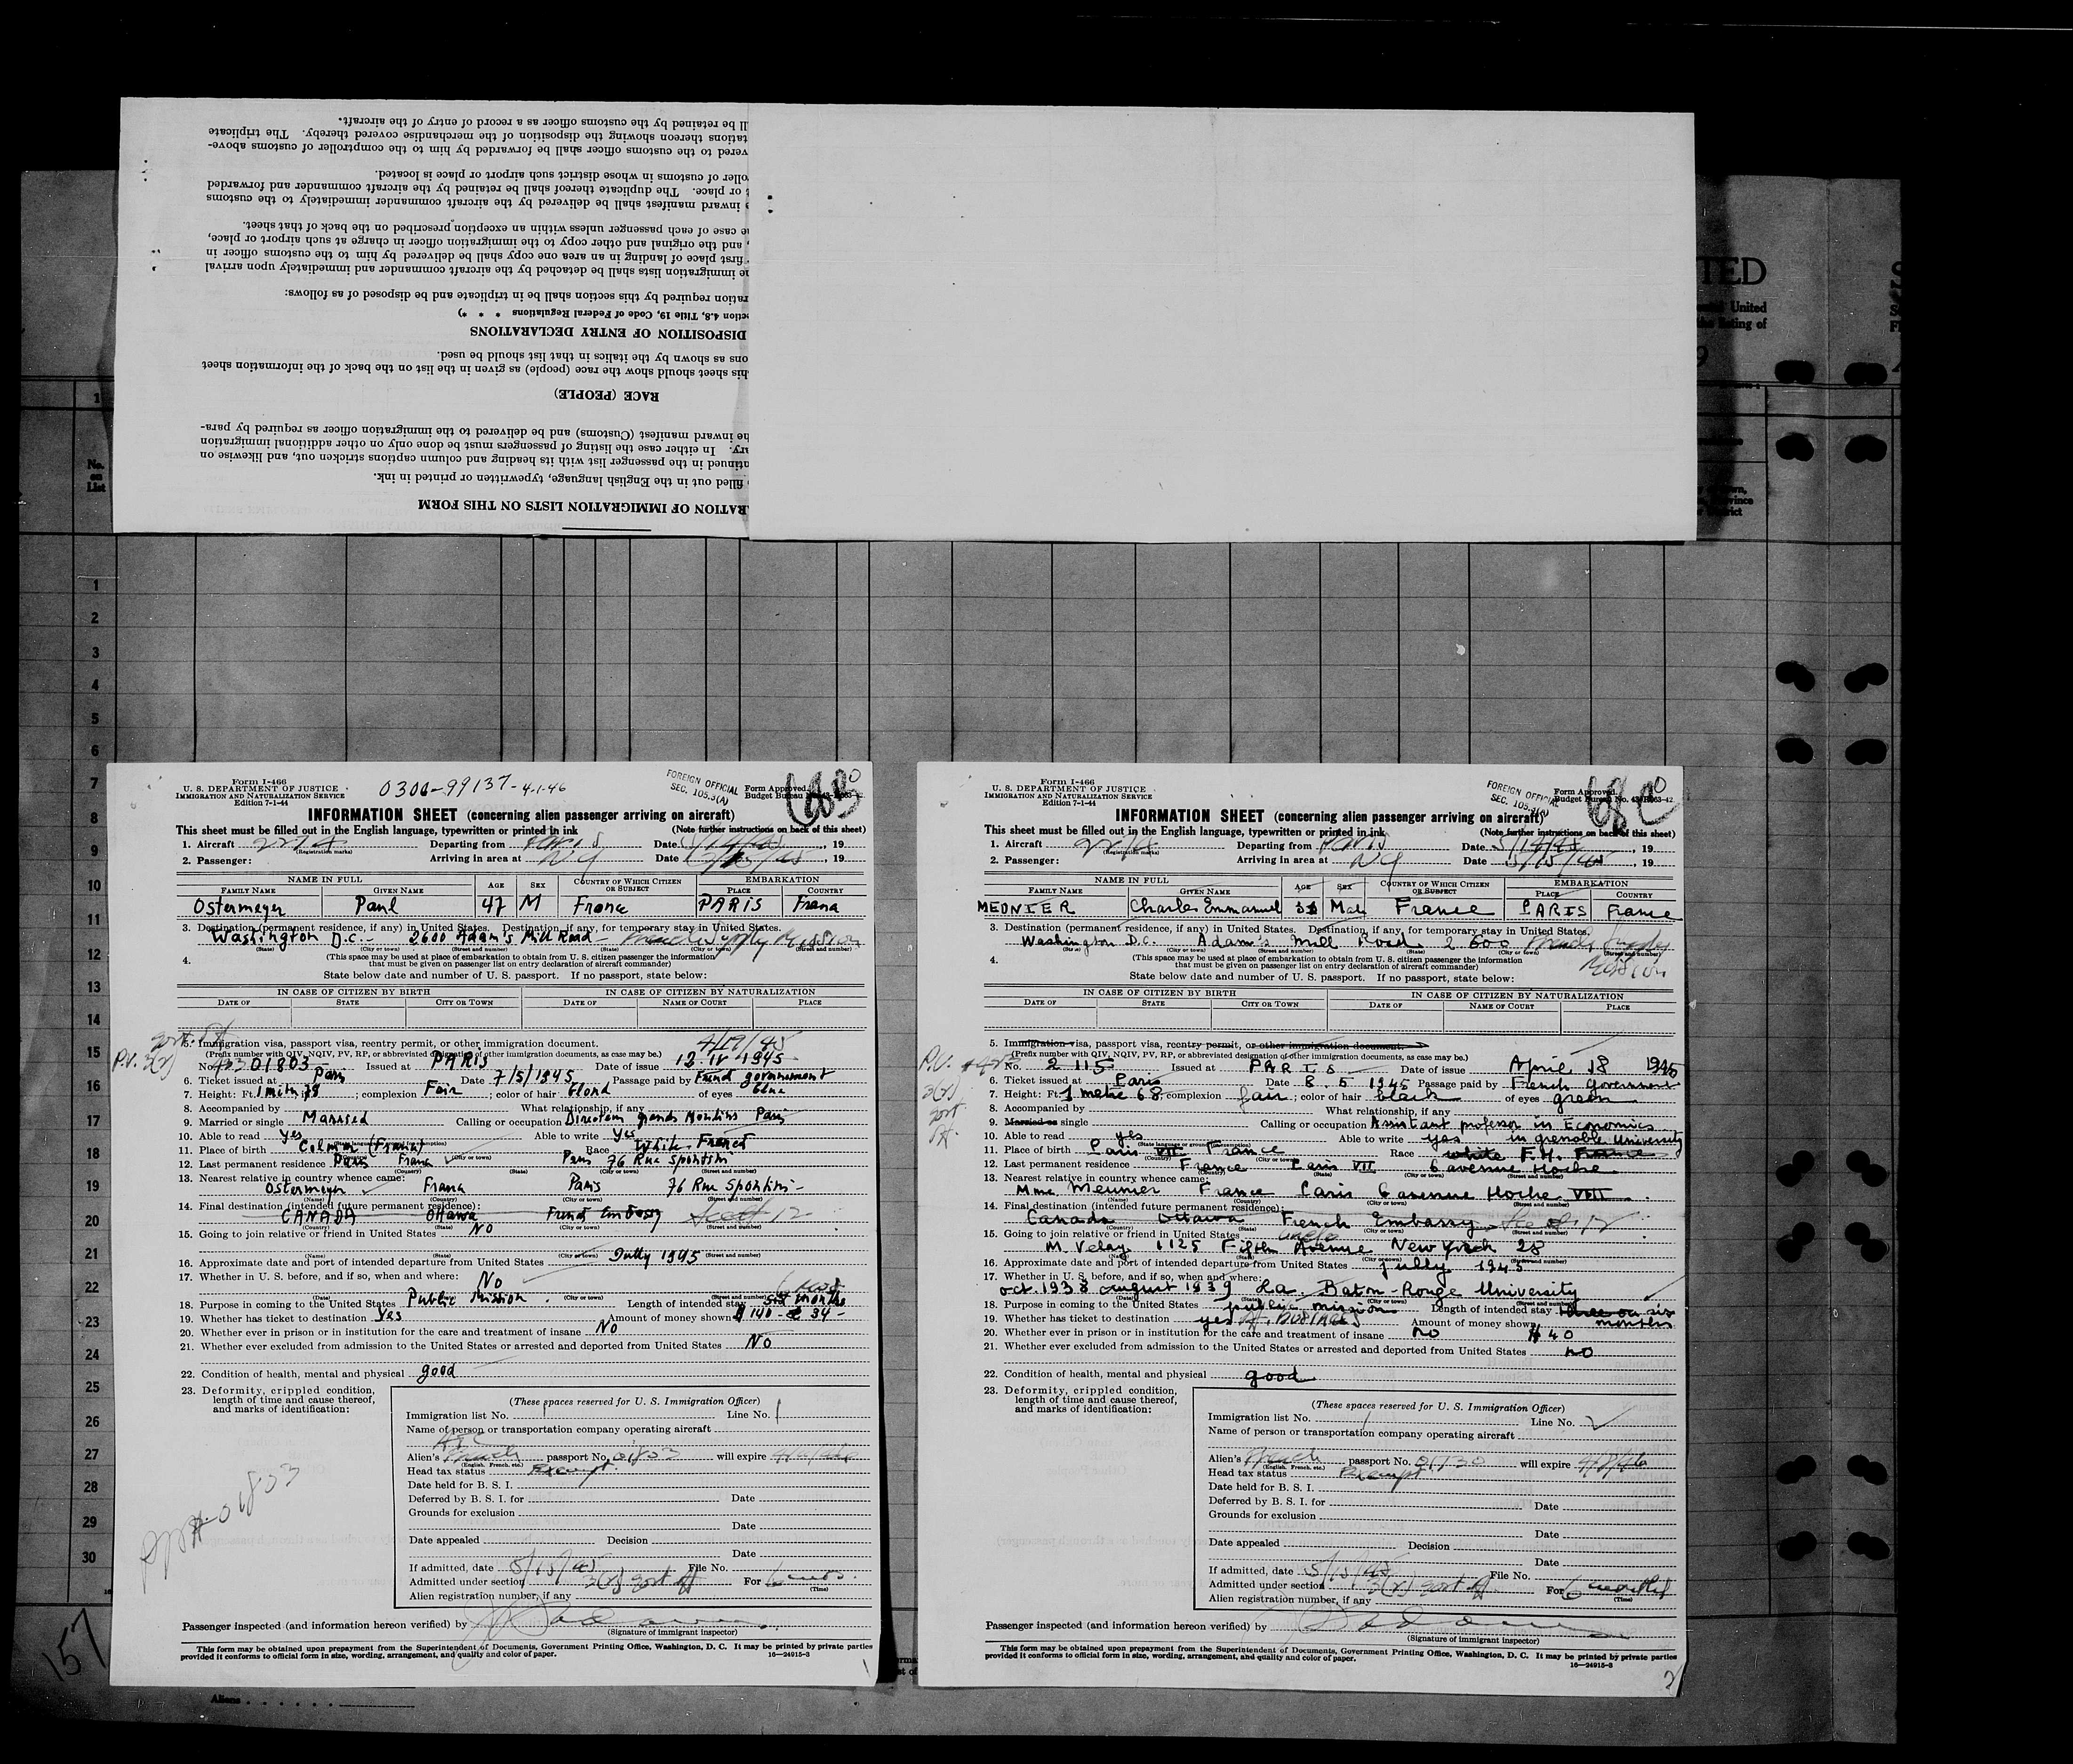 ll be retained by the customs officer as a record of entry of the aircraft.
tations thereon showing the disposition of the merchandise covered thereby. The triplicate
vered to the customs officer shall be forwarded by him to the comptroller of customs above-
oller of customs in whose district such airport or place is located.
t or place. The duplicate thereof shall be retained by the aircraft commander and forwarded
e inward manifest shall be delivered by the aircraft commander immediately to the customs
ne case of each passenger unless within an exception prescribed on the back of that sheet.
, and the original and other copy to the immigration officer in charge at such airport or place,
first place of landing in an area one copy shall be delivered by him to the customs officer in
ne immigration lists shall be detached by the aircraft commander and immediately upon arrival
ration required by this section shall be in triplicate and be disposed of as follows:
ction 4.8, Title 19, Code of Federal Regulations * * *)
DISPOSITION OF ENTRY DECLARATIONS
ons as shown by the italics in that list should be used.
his sheet should show the race (people) as given in the list on the back of the information sheet
RACE (PEOPLE)
he inward manifest (Customs) and be delivered to the immigration officer as required by para-
ary. In either case the listing of passengers must be done only on other additional immigration
ntinued in the passenger list with its heading and column captions stricken out, and likewise on
filled out in the English language, typewritten or printed in ink.
RATION OF IMMIGRATION LISTS ON THIS FORM
TED
United
No. on List
1
1
2
3
4
5
6
7
8
9
10
11
12
13
14
15
16
17
18
19
20
21
22
23
24
25
26
27
28
29
30
157
Aliens
Form I-466
U. S. DEPARTMENT OF JUSTICE
IMMIGRATION AND NATURALIZATION SERVICE
Edition 7-1-44
0300-99137-4-1-46
FOREIGN OFFICIAL
SEC. 105.3(A)
Form Approved.
Budget Bureau No.
INFORMATION SHEET (concerning alien passenger arriving on aircraft)
This sheet must be filled out in the English language, typewritten or printed in ink (Note further instructions on back of this sheet)
1. Aircraft (Registration marks) Departing from Paris Date 5/14/45, 19
2. Passenger: Arriving in area at NY Date 5/15/45, 19
NAME IN FULL AGE SEX COUNTRY OF WHICH CITIZEN OR SUBJECT EMBARKATION
FAMILY NAME GIVEN NAME PLACE COUNTRY
Ostermeyer Paul 47 M France PARIS France
3. Destination (permanent residence, if any) in United States. Destination, if any, for temporary stay in United States.
Washington D.C. - 2600 Adam's Mill Road - French Supply Mission
(State) (City or town) (Street and number) (State) (City or town) (Street and number)
4. (This space may be used at place of embarkation to obtain from U. S. citizen passenger the information
that must be given on passenger list on entry declaration of aircraft commander)
State below date and number of U. S. passport. If no passport, state below:
IN CASE OF CITIZEN BY BIRTH IN CASE OF CITIZEN BY NATURALIZATION
DATE OF STATE CITY OR TOWN DATE OF NAME OF COURT PLACE
5. Immigration visa, passport visa, reentry permit, or other immigration document.
(Prefix number with QIV, NQIV, PV, RP, or abbreviated designation of other immigration documents, as case may be.)
P.V. 3(2) No. 01803 Issued at PARIS Date of issue 12 IV 1945
6. Ticket issued at Paris Date 7/5/1945 Passage paid by French government
7. Height: Ft. ; complexion Fair ; color of hair blond of eyes blue
8. Accompanied by What relationship, if any
9. Married or single Married Calling or occupation Director grands Moulins Paris
10. Able to read yes Able to write Yes
11. Place of birth Colmar (France) Race White French
12. Last permanent residence Paris France Paris 76 Rue Spontini
13. Nearest relative in country whence came:
Ostermeyer France Paris 76 Rue Spontini -
(Name) (Country) (City or town) (Street and number)
14. Final destination (intended future permanent residence):
CANADA Ottawa French Embassy
(Country) (State) (City or town)
15. Going to join relative or friend in United States NO
(Name) (State) (City or town) (Street and number)
16. Approximate date and port of intended departure from United States Jully 1945
17. Whether in U. S. before, and if so, when and where: No
18. Purpose in coming to the United States Public Mission. Length of intended stay six months
19. Whether has ticket to destination Yes Amount of money shown $ 140 - £ 34 -
20. Whether ever in prison or in institution for the care and treatment of insane No
21. Whether ever excluded from admission to the United States or arrested and deported from United States No
22. Condition of health, mental and physical good
23. Deformity, crippled condition,
length of time and cause thereof,
and marks of identification:
(These spaces reserved for U. S. Immigration Officer)
Immigration list No. 1 Line No. 1
Name of person or transportation company operating aircraft
Alien's French passport No. 01803 will expire
(English, French, etc.)
Head tax status Exempt.
Date held for B. S. I.
Deferred by B. S. I. for Date
Grounds for exclusion
Date
Date appealed Decision
Date
If admitted, date 5/15/45 File No.
Admitted under section For 6 mos.
(Time)
Alien registration number, if any
Passenger inspected (and information hereon verified) by
(Signature of immigrant inspector)
This form may be obtained upon prepayment from the Superintendent of Documents, Government Printing Office, Washington, D. C. It may be printed by private parties
provided it conforms to official form in size, wording, arrangement, and quality and color of paper. 16—24915-3
1
Form I-466
U. S. DEPARTMENT OF JUSTICE
IMMIGRATION AND NATURALIZATION SERVICE
Edition 7-1-44
FOREIGN OFFICIAL
SEC. 105.3(A)
Form Approved.
Budget Bureau No.
INFORMATION SHEET (concerning alien passenger arriving on aircraft)
This sheet must be filled out in the English language, typewritten or printed in ink (Note further instructions on back of this sheet)
1. Aircraft (Registration marks) Departing from Paris Date 5/14/45, 19
2. Passenger: Arriving in area at NY Date 5/15/45, 19
NAME IN FULL AGE SEX COUNTRY OF WHICH CITIZEN OR SUBJECT EMBARKATION
FAMILY NAME GIVEN NAME PLACE COUNTRY
MEUNIER Charles Emmanuel Male France PARIS France
3. Destination (permanent residence, if any) in United States. Destination, if any, for temporary stay in United States.
Washington D.C. Adam's Mill Road 2 600 French Supply Mission
4. (This space may be used at place of embarkation to obtain from U. S. citizen passenger the information
that must be given on passenger list on entry declaration of aircraft commander)
State below date and number of U. S. passport. If no passport, state below:
IN CASE OF CITIZEN BY BIRTH IN CASE OF CITIZEN BY NATURALIZATION
DATE OF STATE CITY OR TOWN DATE OF NAME OF COURT PLACE
5. Immigration visa, passport visa, reentry permit, or other immigration document.
(Prefix number with QIV, NQIV, PV, RP, or abbreviated designation of other immigration documents, as case may be.)
P.V. No. 2 115 Issued at PARIS Date of issue April 18 1945
6. Ticket issued at Paris Date 8. 5 1945 Passage paid by French Government
7. Height: Ft. 1 metre 68; complexion fair ; color of hair black of eyes green
8. Accompanied by What relationship, if any
9. Married or single Calling or occupation Assistant professor in Economics
10. Able to read yes Able to write yes in grenoble University
11. Place of birth Paris VII France Race white F.H. France
12. Last permanent residence France Paris VII 6 avenue Hoche
13. Nearest relative in country whence came:
Mme Meunier France Paris 6 avenue Hoche VIII
(Name) (Country) (City or town) (Street and number)
14. Final destination (intended future permanent residence):
Canada Ottawa French Embassy
15. Going to join relative or friend in United States uncle
M. Velay 1125 Fifth Avenue New York 28
16. Approximate date and port of intended departure from United States jully 1945
17. Whether in U. S. before, and if so, when and where:
oct. 1938 august 1939 La. Baton-Rouge University
18. Purpose in coming to the United States public mission Length of intended stay three or six months
19. Whether has ticket to destination yes Amount of money shown $ 40
20. Whether ever in prison or in institution for the care and treatment of insane no
21. Whether ever excluded from admission to the United States or arrested and deported from United States no
22. Condition of health, mental and physical good
23. Deformity, crippled condition,
length of time and cause thereof,
and marks of identification:
(These spaces reserved for U. S. Immigration Officer)
Immigration list No. 1 Line No. 2
Name of person or transportation company operating aircraft
Alien's French passport No. will expire
(English, French, etc.)
Head tax status Exempt
Date held for B. S. I.
Deferred by B. S. I. for Date
Grounds for exclusion
Date
Date appealed Decision
Date
If admitted, date 5/15/45 File No.
Admitted under section For 6 months
(Time)
Alien registration number, if any
Passenger inspected (and information hereon verified) by
(Signature of immigrant inspector)
This form may be obtained upon prepayment from the Superintendent of Documents, Government Printing Office, Washington, D. C. It may be printed by private parties
provided it conforms to official form in size, wording, arrangement, and quality and color of paper. 16—24915-3
2